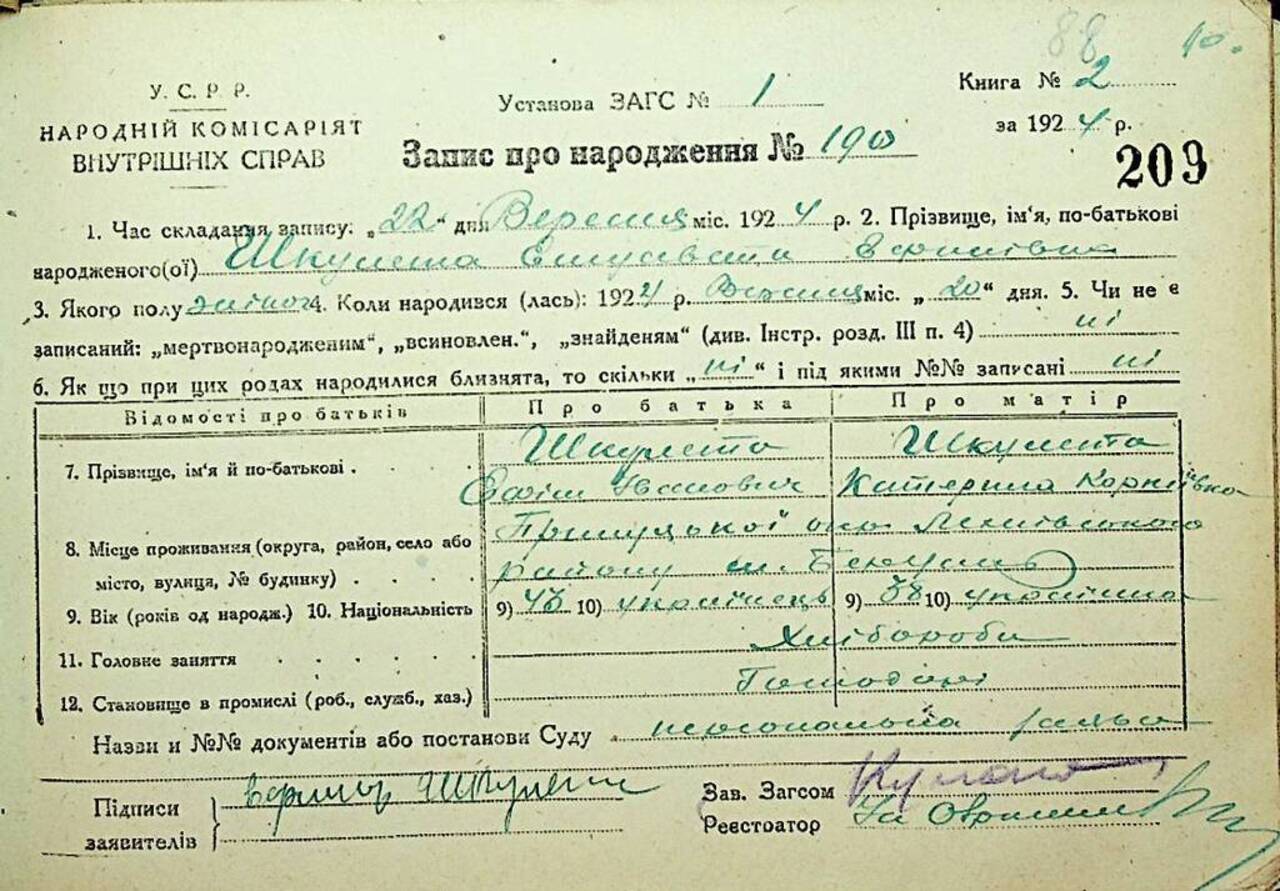 88 10.
У. С. Р. Р.
НАРОДНІЙ КОМІСАРІЯТ
ВНУТРІШНІХ СПРАВ
Установа ЗАГС № 1
Запис про народження № 190
Книга № 2
за 1924 р.
209
1. Час складання запису: „22“ дня Вересня міс. 1924 р. 2. Прізвище, ім‘я, по-батькові
народженого(ої) Шкулета Єлисавета
3. Якого полу жіноч 4. Коли народився (лась): 1924 р. Вересня міс. „20“ дня. 5. Чи не є
записаний: „мертвонародженим“, „всиновлен.“, „знайденям“ (див. Інстр. розд. III п. 4) ні
6. Як що при цих родах народилися близнята, то скільки „ні“ і під якими №№ записані ні
Відомості про батьків Про батька Про матір
7. Прізвище, ім‘я й по-батькові . Шкулета Шкулета
Єфім Іванович Катерина Корніївна
8. Місце проживання (округа, район, село або Прилуцької окр.
місто, вулиця, № будинку) району
9. Вік (років од народж.) 10. Національність 9) 10) українець 9) 38 10) українка
11. Головне заняття Хлібороби
12. Становище в промислі (роб., служб., хаз.) Господарі
Назви и №№ документів або постанови Суду персональна заява
Підписи
заявителів
Зав. Загсом
Реєстратор